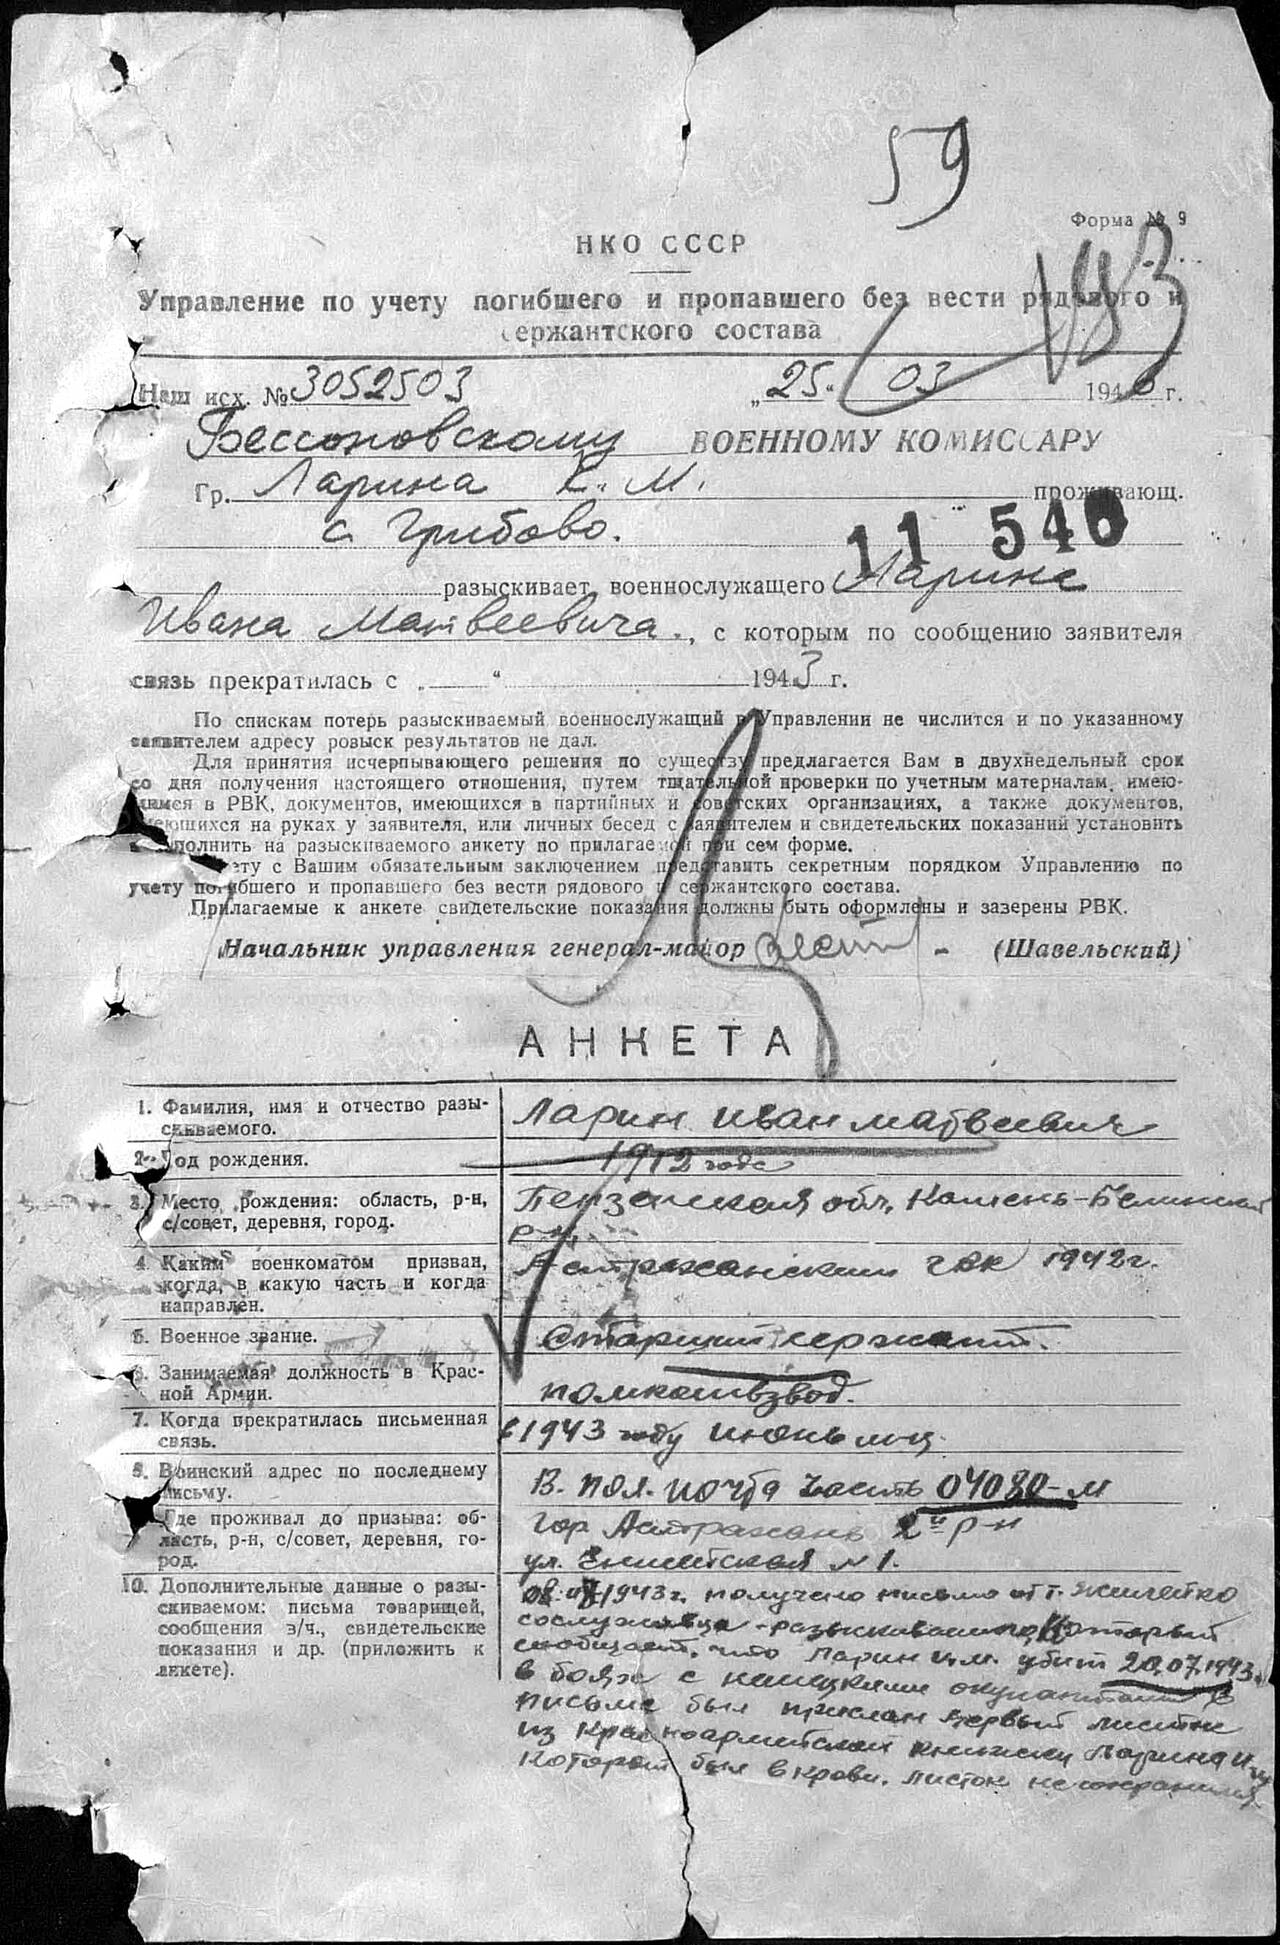 59
Форма № 9
183
НКО СССР
Управление по учету погибшего и пропавшего без вести рядового и
сержантского состава
Наш исх. № 3052503 „25“ 03 1946 г.
Бессоновскому ВОЕННОМУ КОМИССАРУ
Гр. Ларина Е. М. проживающ.
с. Грибово.
11 546
разыскивает военнослужащего Ларина
Ивана Матвеевича, с которым по сообщению заявителя
связь прекратилась с „ “ 1943 г.
По спискам потерь разыскиваемый военнослужащий в Управлении не числится и по указанному
заявителем адресу розыск результатов не дал.
Для принятия исчерпывающего решения по существу предлагается Вам в двухнедельный срок
со дня получения настоящего отношения, путем тщательной проверки по учетным материалам, имею-
щимся в РВК, документов, имеющихся в партийных и советских организациях, а также документов,
имеющихся на руках у заявителя, или личных бесед с заявителем и свидетельских показаний установить
и заполнить на разыскиваемого анкету по прилагаемой при сем форме.
Анкету с Вашим обязательным заключением представить секретным порядком Управлению по
учету погибшего и пропавшего без вести рядового и сержантского состава.
Прилагаемые к анкете свидетельские показания должны быть оформлены и заверены РВК.
Начальник управления генерал-майор - (Шавельский)
АНКЕТА
1. Фамилия, имя и отчество разы-
скиваемого.
Ларин Иван Матвеевич
2. Год рождения.
1912 года
3. Место рождения: область, р-н,
с/совет, деревня, город.
Пензенская обл, Камень-Белинский
р-н,
4. Каким военкоматом призван,
когда, в какую часть и когда
направлен.
Астраханским ГВК 1942г.
5. Военное звание.
Старший сержант.
6. Занимаемая должность в Крас-
ной Армии.
помкомвзвод.
7. Когда прекратилась письменная
связь.
в 1943 году июнь м-ц
8. Воинский адрес по последнему
письму.
В. пол. почта часть 04080-м
Где проживал до призыва: об-
ласть, р-н, с/совет, деревня, го-
род.
гор Астрахань 2й р-н
ул. N 1.
10. Дополнительные данные о разы-
скиваемом: письма товарищей,
сообщения в/ч., свидетельские
показания и др. (приложить к
анкете).
1943г. получено письмо от т.
сослуживца разыскиваемого, который
сообщает, что Ларин И.М. убит 20.07.1943г
в боях с немецкими оккупантами в
письме был прислан первый листок
из красноармейской книжки Ларина И.М
который был в крови. листок не сохранился